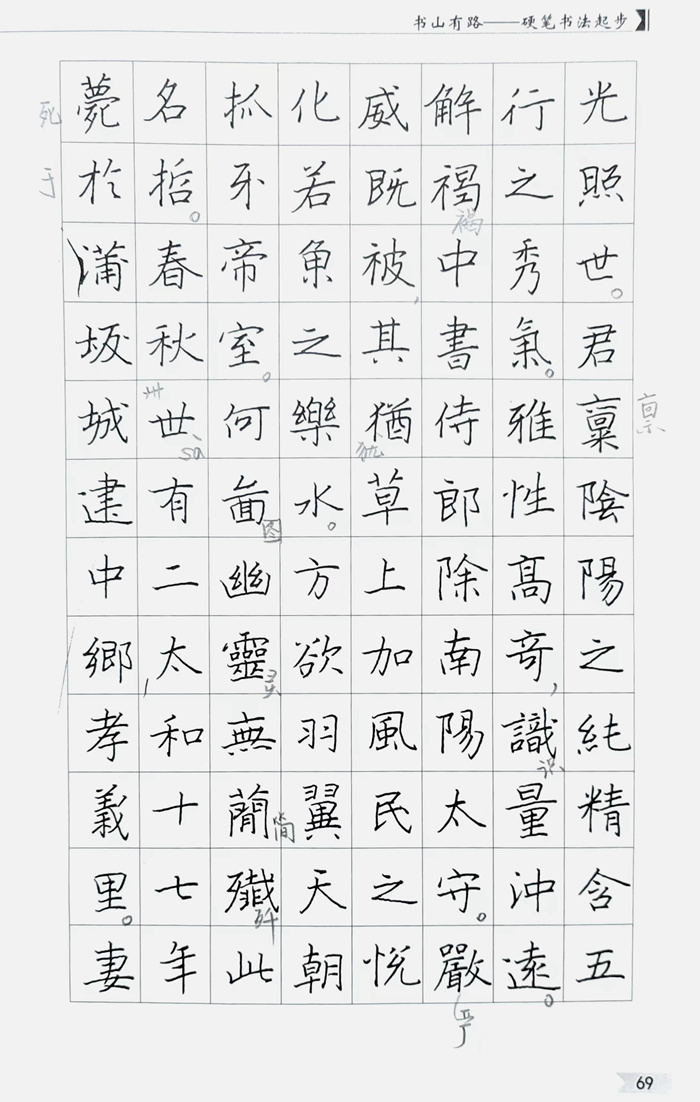 书山有路——硬笔书法起步
光照世。君稟陰陽之純精含五
行之秀氣。雅性髙奇,識量沖遠。
解褐中書侍郎除南陽太守。嚴
威既被,其猶草上加風民之悅
化若魚之樂水。方欲羽翼天朝
抓牙帝室。何啚幽靈無蕳殲此
名哲。春秋世有二,太和十七年
薨於蒲坂城建中鄉孝義里。妻
禀
识
褐
严
犹
图
灵
简
歼
卅
sà
死
于
69